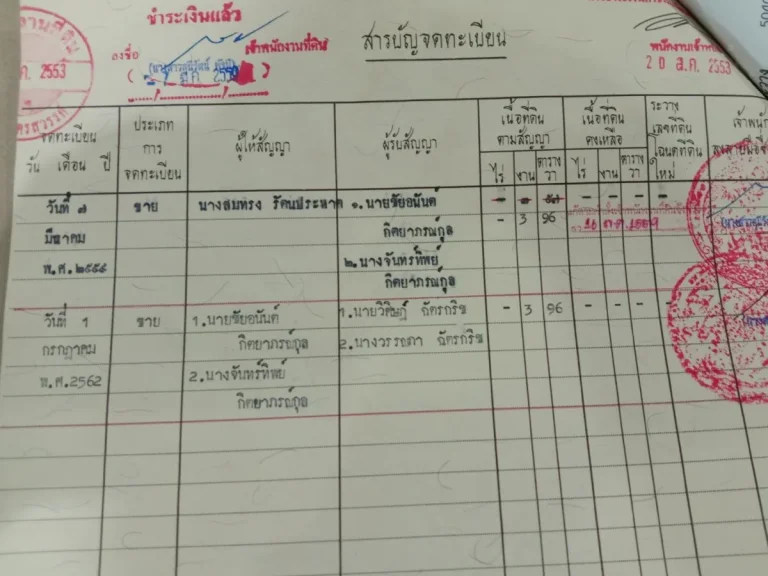 ชำระเงินแล้ว
สารบัญจดทะเบียน
ลงชื่อ เจ้าพนักงานที่ดิน
2553
20 ส.ค. 2553
จดทะเบียน
วัน เดือน ปี
ประเภท
การ
จดทะเบียน
ผู้ให้สัญญา
ผู้รับสัญญา
เนื้อที่ดิน
ตามสัญญา
ไร่ งาน ตาราง
วา
เนื้อที่ดิน
คงเหลือ
ไร่ งาน ตาราง
วา
ระวาง
เลขที่ดิน
โฉนดที่ดิน
ใหม่
วันที่ ๗ ขาย นางสมทรง รัตนประหาด ๑.นายชัยอนันต์ - - - - -
มีนาคม กิตยาภรณ์กุล - 3 96
พ.ศ.๒๕๕๙ ๒.นางจันทร์ทิพย์
กิตยาภรณ์กุล
วันที่ 1 ขาย 1.นายชัยอนันต์ 1.นายวิศิษฎ์ ฉัตรกริช - 3 96 - - - -
กรกฎาคม กิตยาภรณ์กุล 2.นางวรรณภา ฉัตรกริช
พ.ศ.2562 2.นางจันทร์ทิพย์
กิตยาภรณ์กุล